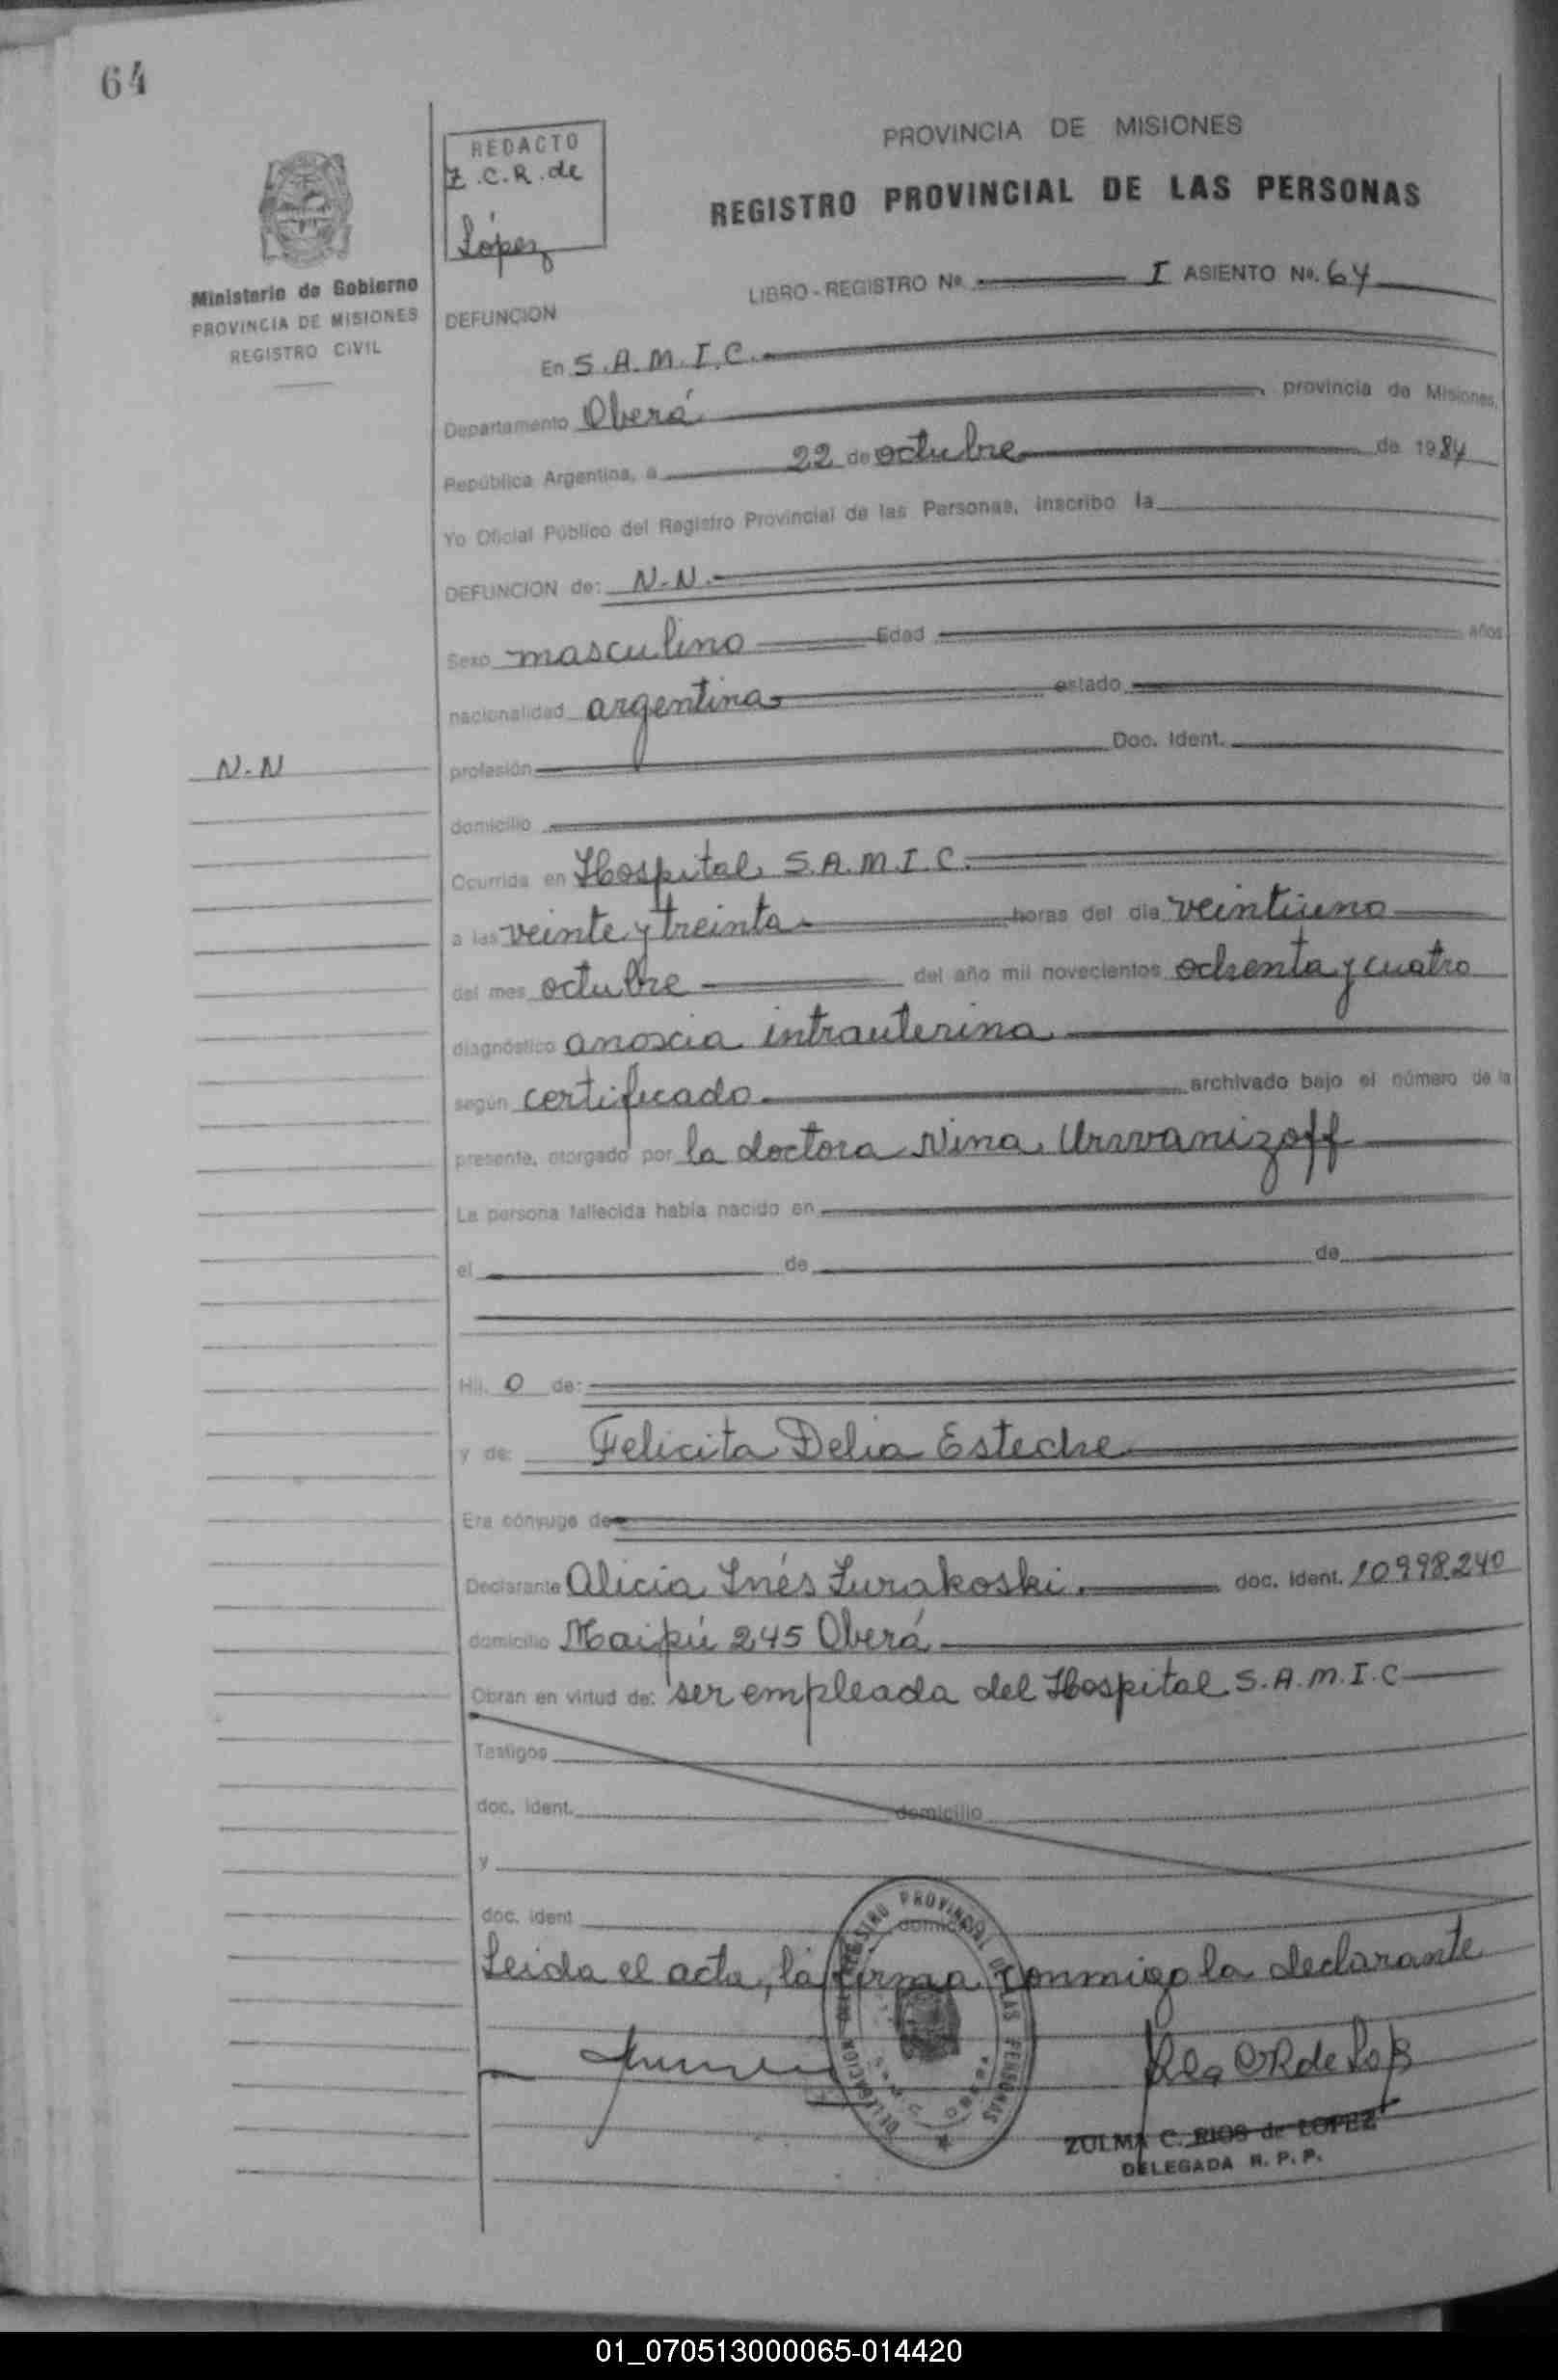 64
REDACTO
Z.C.R. de
López
PROVINCIA DE MISIONES
REGISTRO PROVINCIAL DE LAS PERSONAS
Ministerio de Gobierno
PROVINCIA DE MISIONES
REGISTRO CIVIL
LIBRO - REGISTRO Nº I ASIENTO Nº. 64
DEFUNCION
En S.A.M.I.C.
Departamento Oberá provincia de Misiones,
República Argentina, a 22 de octubre de 1984
Yo Oficial Público del Registro Provincial de las Personas, inscribo la
DEFUNCION de: N.N.
Sexo masculino Edad años
nacionalidad argentina estado
N.N
profesión Doc. Ident.
domicilio
Ocurrida en Hospital S.A.M.I.C.
a las veinte y treinta horas del día veintiuno
del mes octubre del año mil novecientos ochenta y cuatro
diagnóstico anoxia intrauterina
según certificado archivado bajo el número de la
presente, otorgado por la doctora Nina Urwanizoff
La persona fallecida había nacido en
el de de
Hij. o de:
y de: Felicita Delia Esteche
Era cónyuge de
Declarante Alicia Inés Zurakoski doc. ident. 10998240
domicilio Maipú 245 Oberá
Obran en virtud de: ser empleada del Hospital S.A.M.I.C
Testigos
doc. ident. domicilio
y
doc. ident domicilio
Leida el acta, la firma conmigo la declarante
DELEGACION DEL REGISTRO PROVINCIAL DE LAS PERSONAS
ZULMA C. RIOS de LOPEZ
DELEGADA R. P. P.
01_070513000065-014420